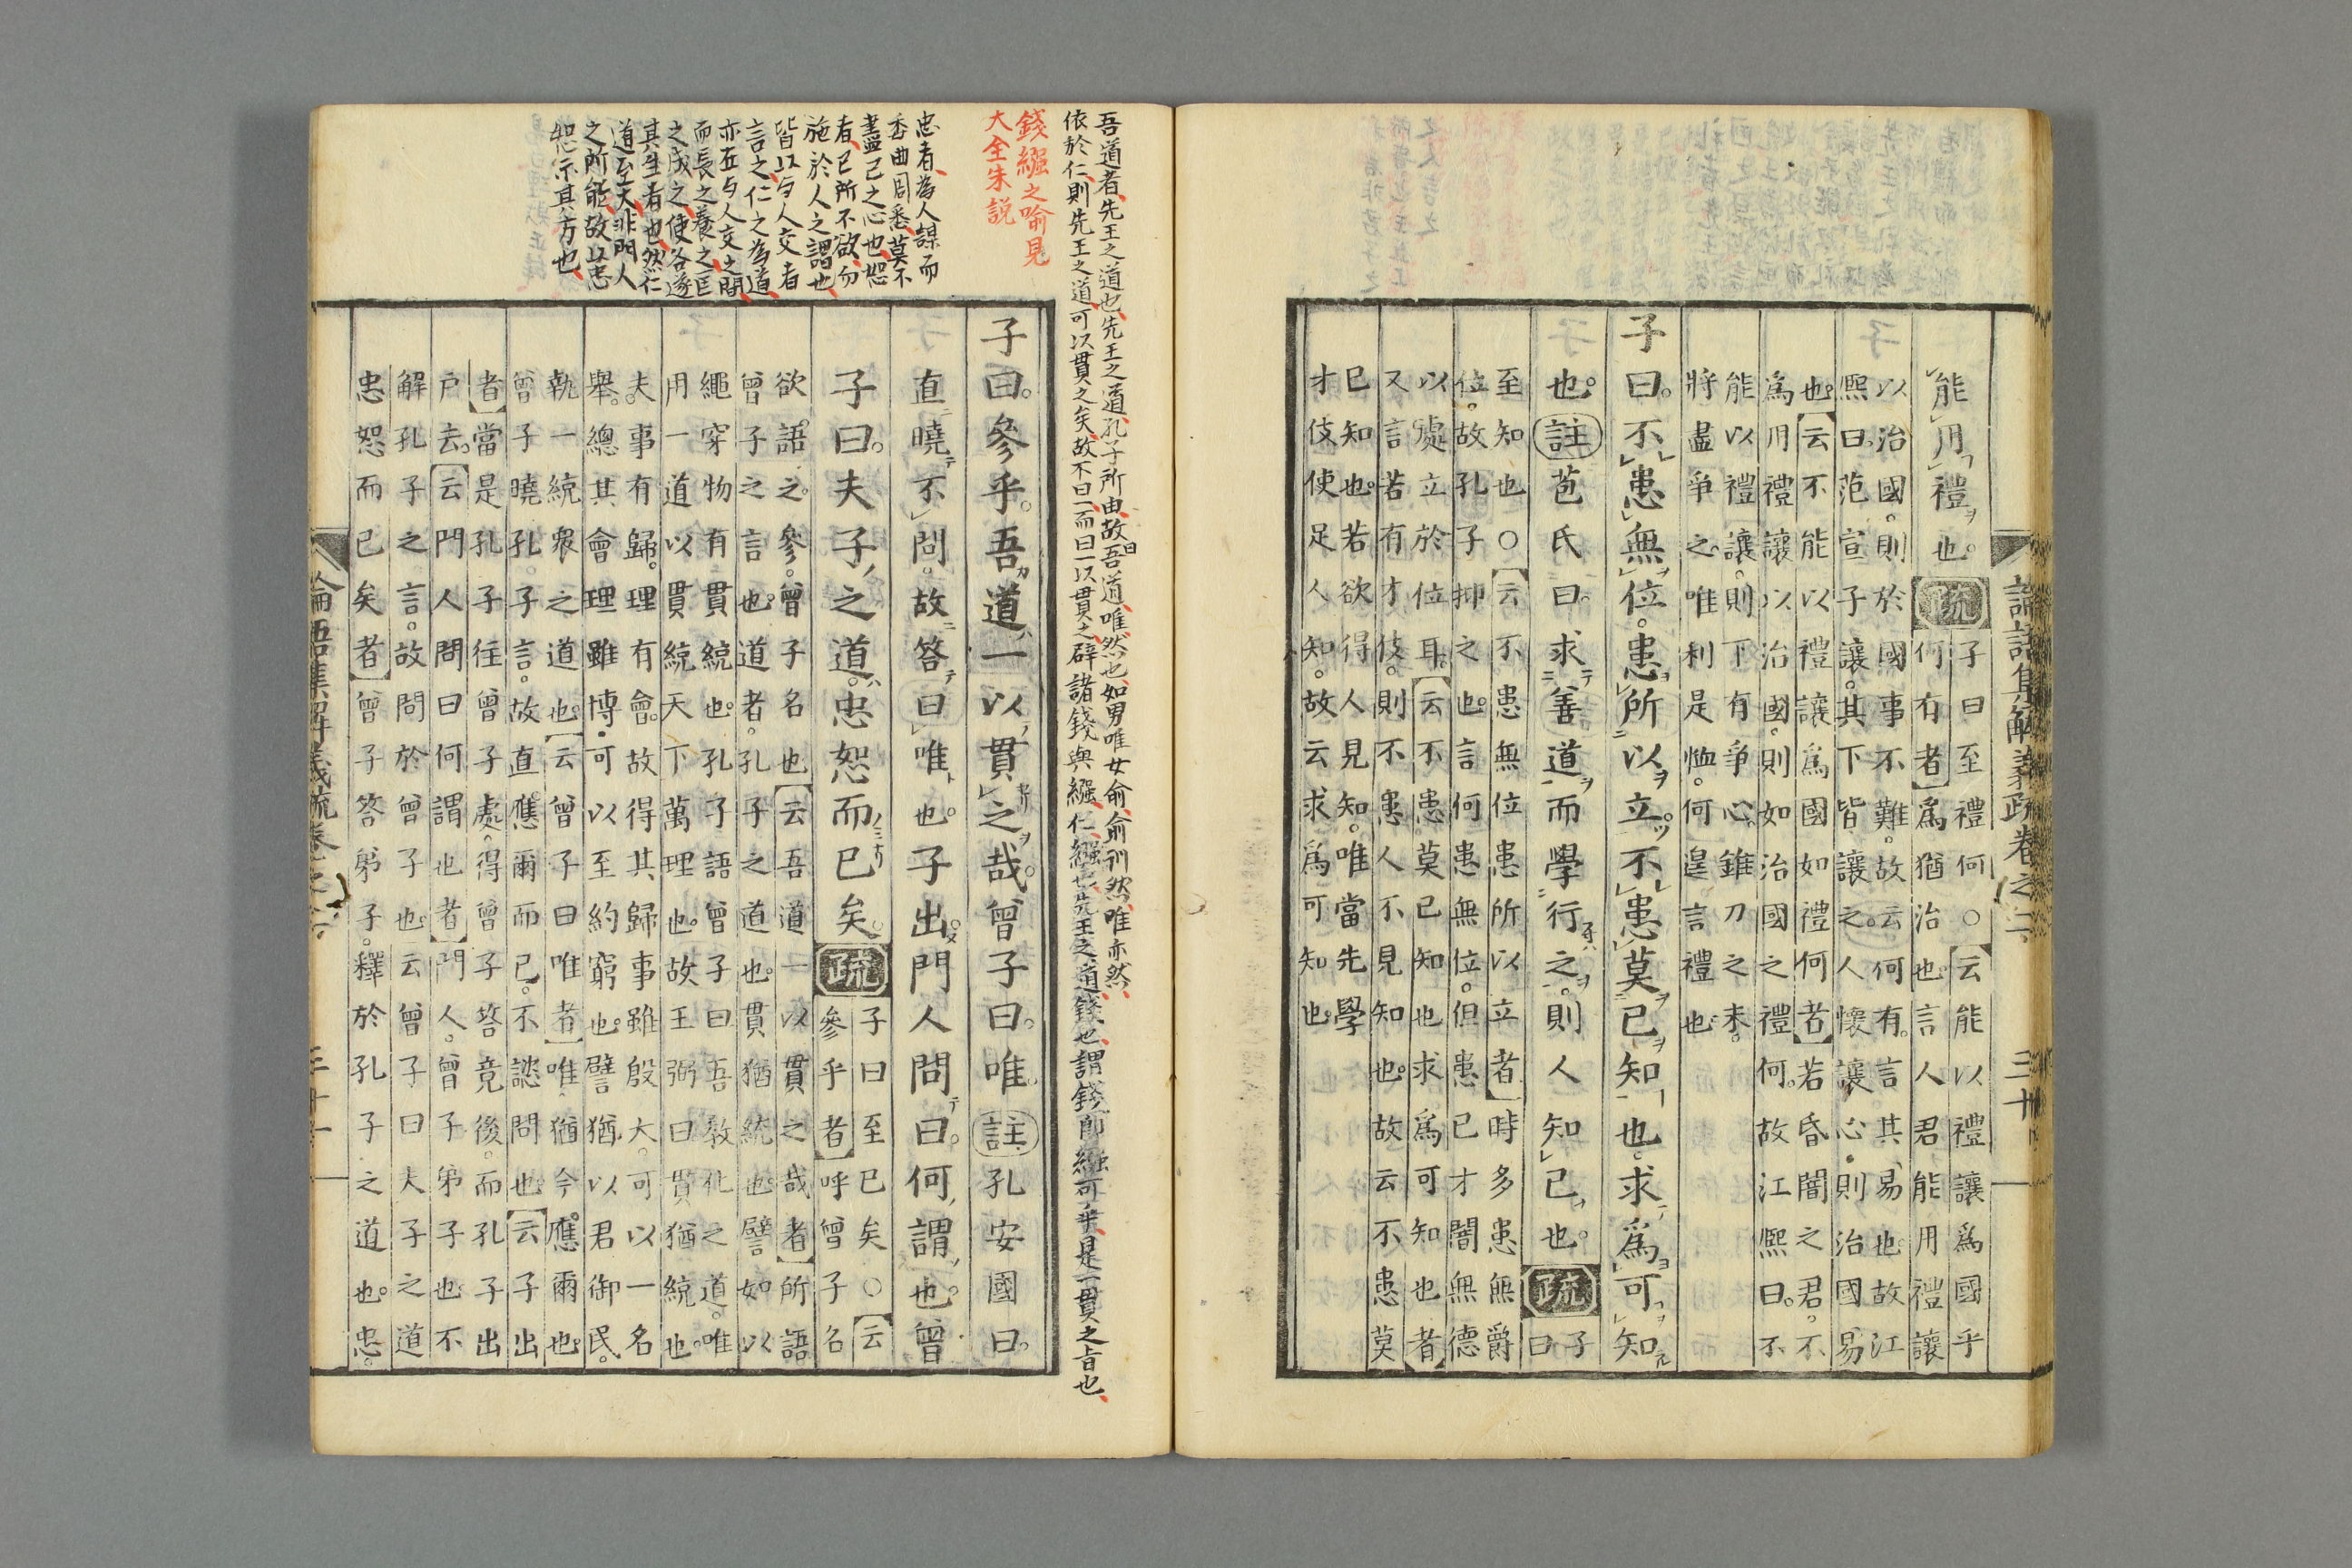 論語集解義疏卷之二 三十
能用禮也。疏
子曰至禮何○云能以禮讓爲國乎
何有者爲猶治也言人君能用禮讓
以治國。則於國事不難。故云何有。言其易也。故江
熙曰。范宣子讓。其下皆讓之。人懷讓心。則治國易
也。云不能以禮讓爲國如禮何者若昏闇之君。不
爲用禮讓以治國。則如治國之禮何。故江熙曰。不
能以禮讓。則下有爭心。錐刀之末。
將盡爭之。唯利是恤。何遑言禮也
子曰。不患無位。患所以立。不患莫已知也。求爲可知
也。註苞氏曰。求善道而學行之。則人知已也。疏
子
曰
至知也○云不患無位患所以立者時多患無爵
位。故孔子抑之也。言何患無位。但患已才闇無德
以處立於位耳。云不患莫已知也求爲可知也者
又言若有才伎。則不患人不見知也。故云不患莫
已知也。若欲得人見知。唯當先學
才伎使足人知。故云求爲可知也。
吾道者、先王之道也、先王之道、孔子所由、故曰吾道、唯然也、如男唯女俞、俞訓然、唯亦然、
依於仁、則先王之道可以貫之矣、故不曰一而曰以貫之、辟諸錢與繦、仁繦也、先王之道錢也、謂錢即繦可乎、是一貫之旨也、
錢繦之喻見
大全朱説
忠者、爲人謀而
委曲周悉、莫不
盡己之心也、恕
者、已所不欲、勿
施於人之謂也
皆以与人交者
言之、仁之為道
亦在与人交之間
而長之養之匡
之成之、使各遂
其生者也、然仁
道至大、非門人
之所能、故以忠
恕示其方也
子曰。參乎。吾道一以貫之哉。曾子曰。唯。註孔安國曰。
直曉不問。故答曰唯也。子出。門人問曰。何謂也。曾
子曰。夫子之道。忠恕而已矣。疏
子曰至已矣○云
參乎者呼曾子名
欲語之。參。曾子名也云吾道一以貫之哉者所語
曾子之言也。道者。孔子之道也。貫猶統也。譬如以
繩穿物有貫統也。孔子語曾子曰吾教化之道。唯
用一道以貫統天下萬理也。故王弼曰貫猶統也。
夫事有歸。理有會。故得其歸事雖殷大。可以一名
舉。總其會理雖博。可以至約窮也。譬猶以君御民。
執一統衆之道也。云曾子曰唯者唯猶今應爾也。
曾子曉孔。子言。故直應爾而已。不諮問也云子出
者當是孔子往曾子處。得曾子答竟後。而孔子出
戶去。云門人問曰何謂也者門人。曾子弟子也不
解孔子之言。故問於曾子也云曾子曰夫子之道
忠恕而已矣者曾子答弟子。釋於孔子之道也。忠。
論語集解義疏卷之二 三十一